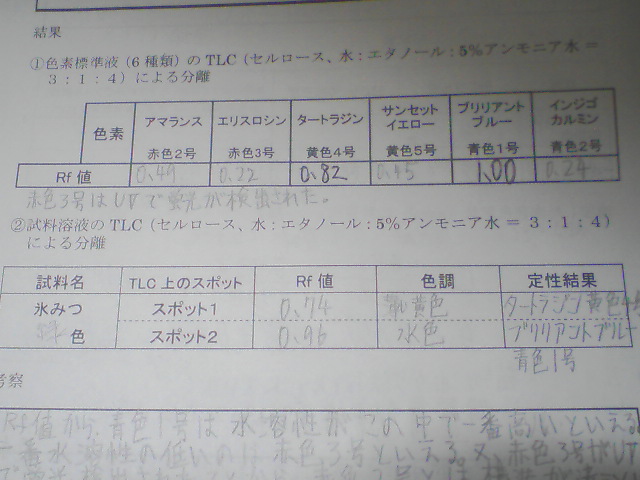 結果
①色素標準液（6種類）のTLC（セルロース、水：エタノール：5%アンモニア水＝
3：1：4）による分離
色素 アマランス 赤色2号 エリスロシン 赤色3号 タートラジン 黄色4号 サンセットイエロー 黄色5号 ブリリアントブルー 青色1号 インジゴカルミン 青色2号
Rf値 0.49 0.22 0.82 0.45 1.00 0.24
赤色3号はUVで蛍光が検出された。
②試料溶液のTLC（セルロース、水：エタノール：5%アンモニア水＝3：1：4）
による分離
試料名 TLC上のスポット Rf値 色調 定性結果
氷みつ スポット1 0.74 黄色 タートラジン黄色4号
色 スポット2 0.96 水色 ブリリアントブルー
青色1号
考察
Rf値から、青色1号は水溶性がこの中で一番高いといえる
一番水溶性の低いのは赤色3号といえる。又、赤色3号がUV